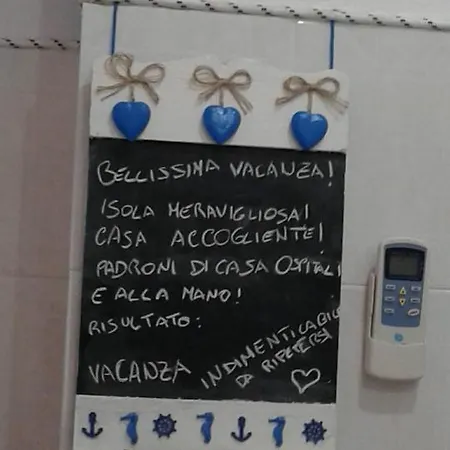 BELLISSIMA VACANZA!
ISOLA MERAVIGLIOSA!
CASA ACCOGLIENTE!
PADRONI DI CASA OSPITALI
E ALLA MANO!
RISULTATO:
VACANZA INDIMENTICABILE
DA RIPETERSI